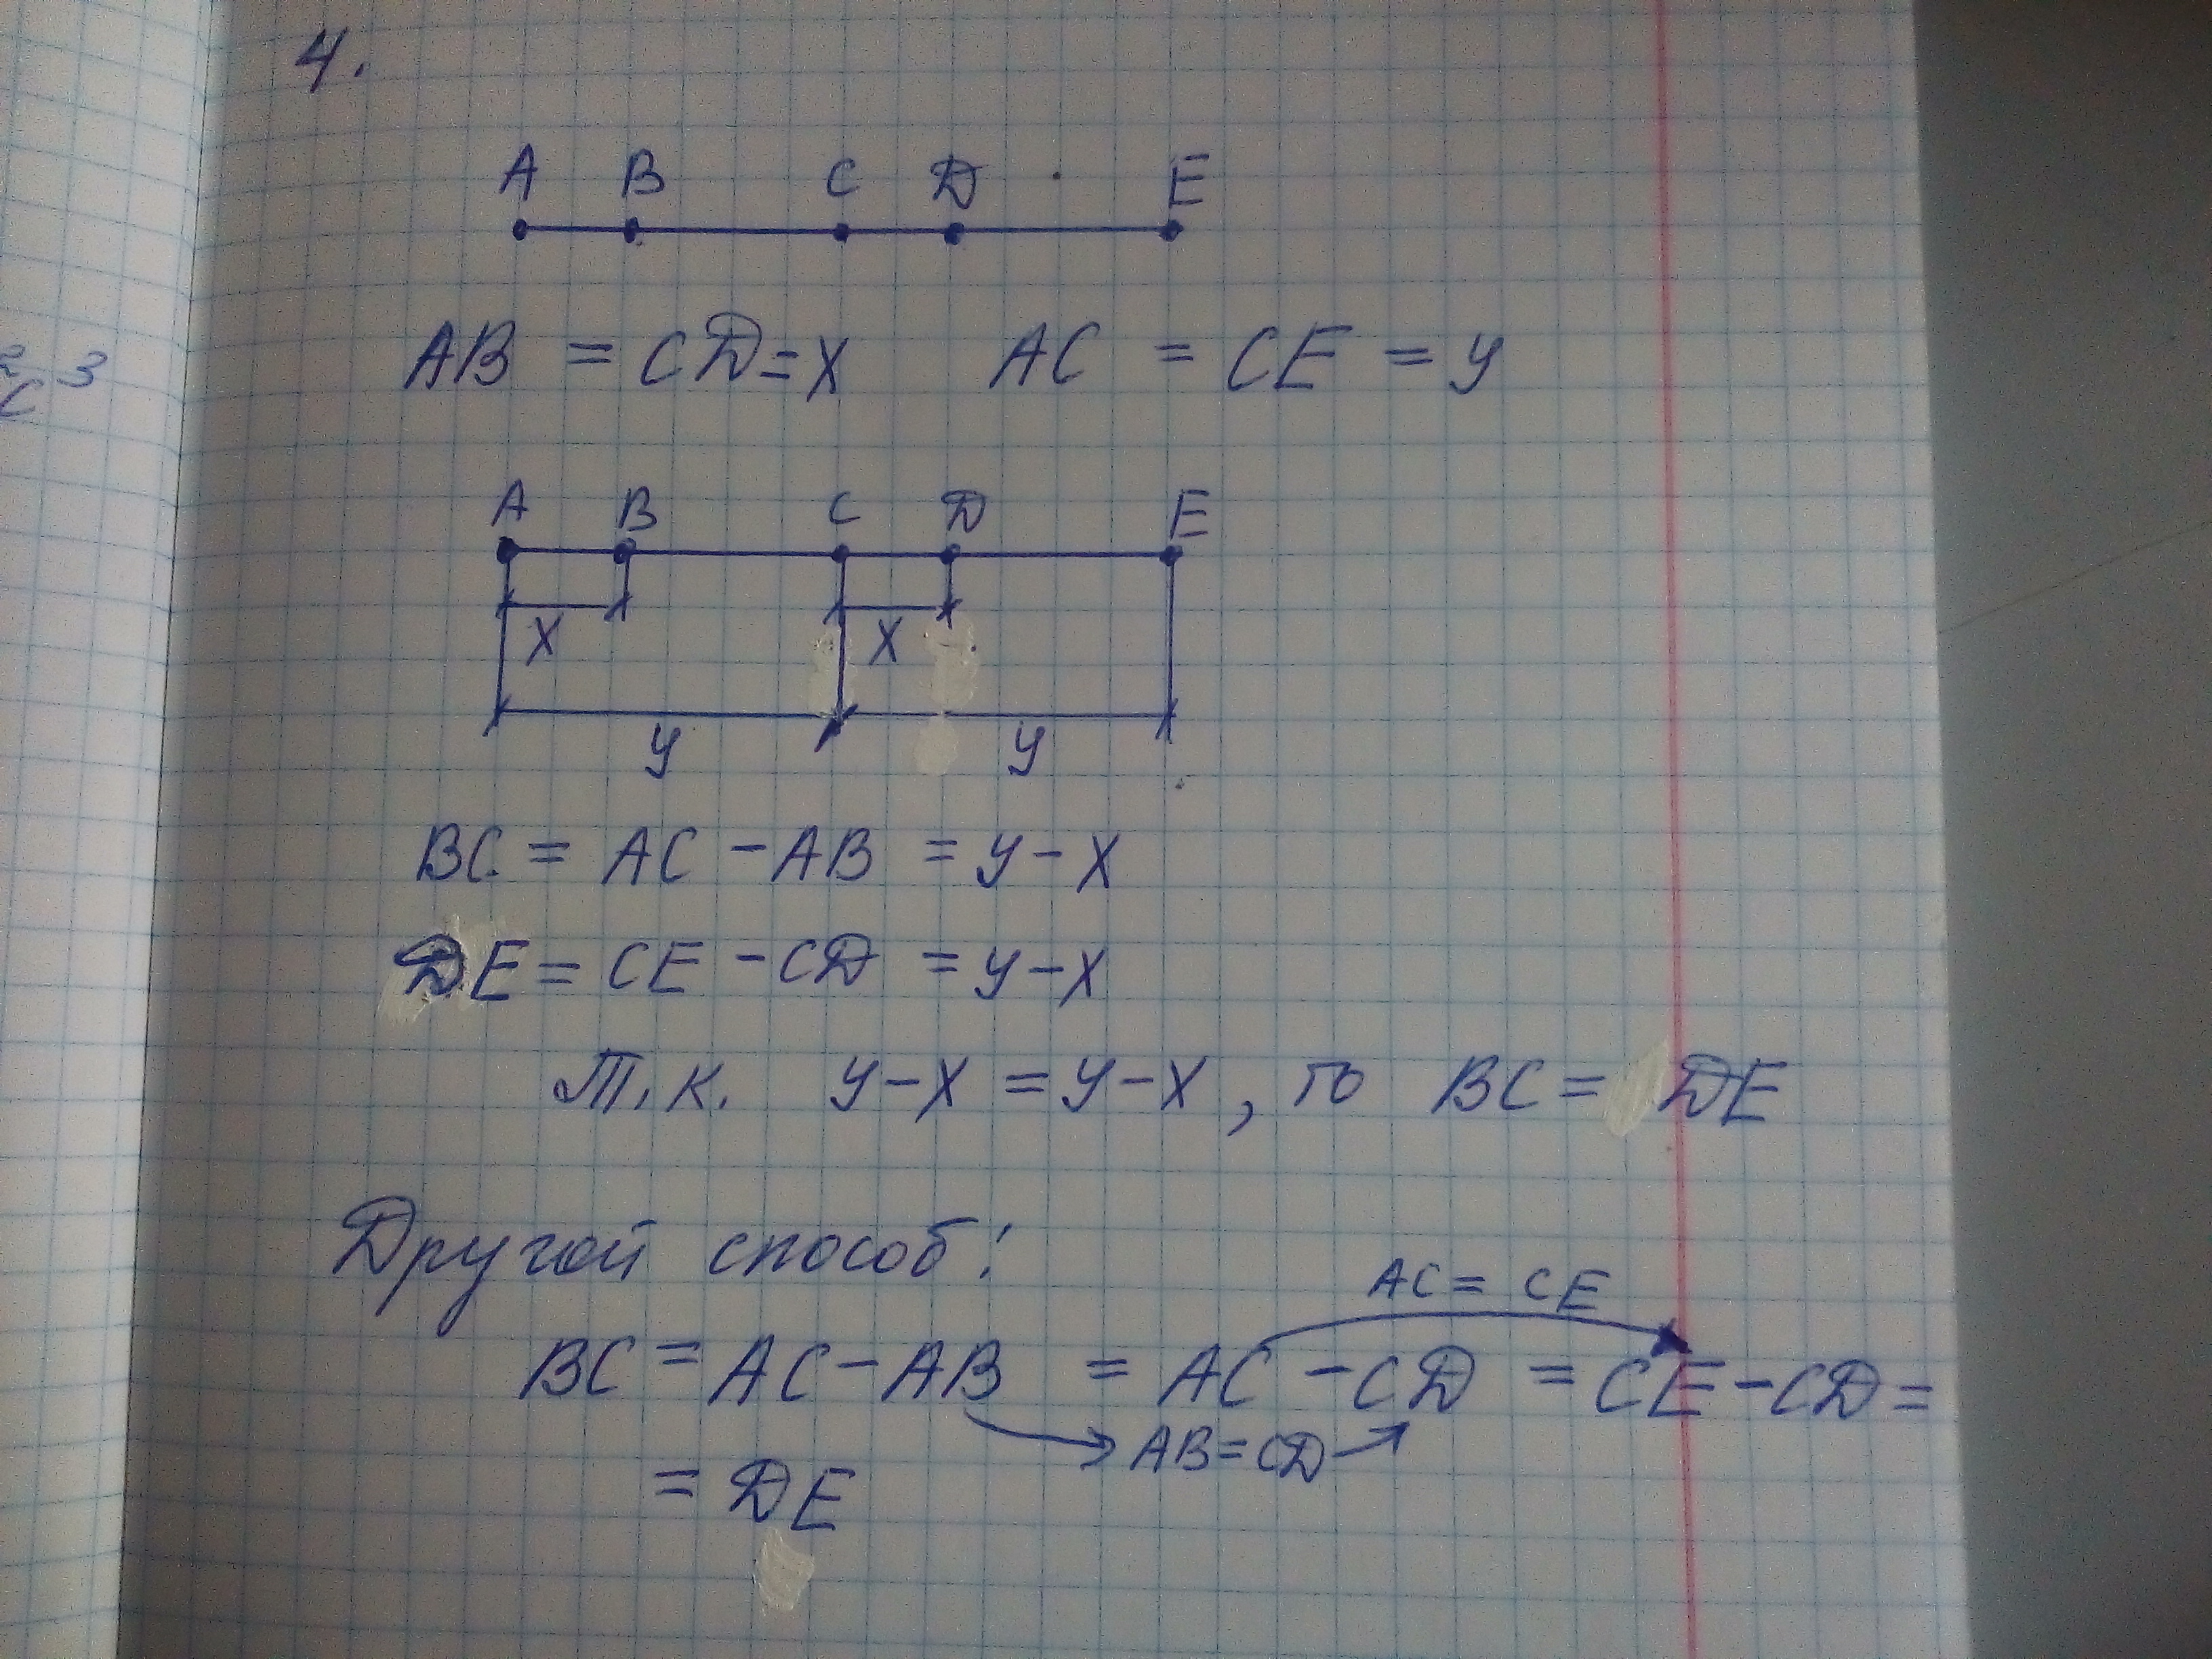 4.
A B C D E
AB = CD = x AC = CE = y
A B C D E
x x
y y
BC = AC - AB = y - x
DE = CE - CD = y - x
Т.к. y - x = y - x, то BC = DE
Другой способ:
AC = CE
BC = AC - AB = AC - CD = CE - CD =
AB = CD
= DE